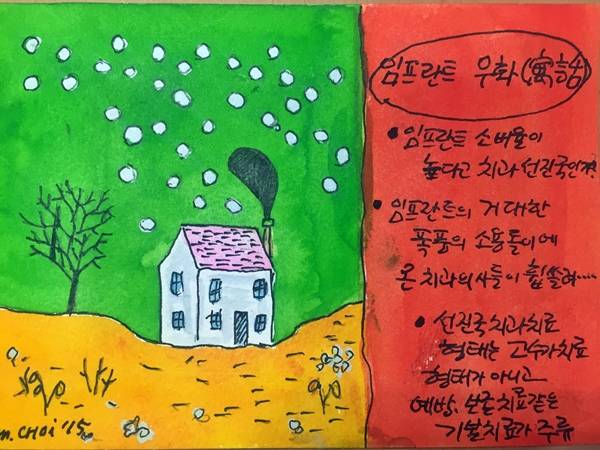 임프란트 우화(寓話)
• 임프란트 소비율이
높다고 치과선진국인가?
• 임프란트의 거대한
폭풍의 소용돌이에
온 치과의사들이 휩쓸려....
• 선진국치과치료
형태는 고수가치료
형태가 아니고
예방, 보존치료같은
기본치료가 주류
m. CHOi '15.